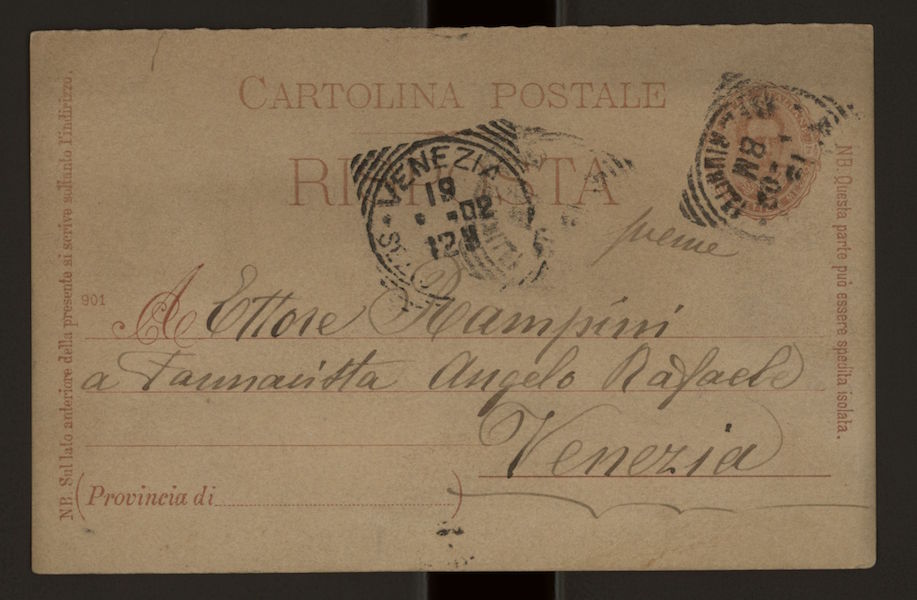 CARTOLINA POSTALE
RISPOSTA
VENEZIA
19
02
12
8M
preme
901
A Ettore Rampini
a Farmacista Angelo Rafaele
Venezia
(Provincia di )
NB. Sul lato anteriore della presente si scrive soltanto l'indirizzo.
NB. Questa parte può essere spedita isolata.